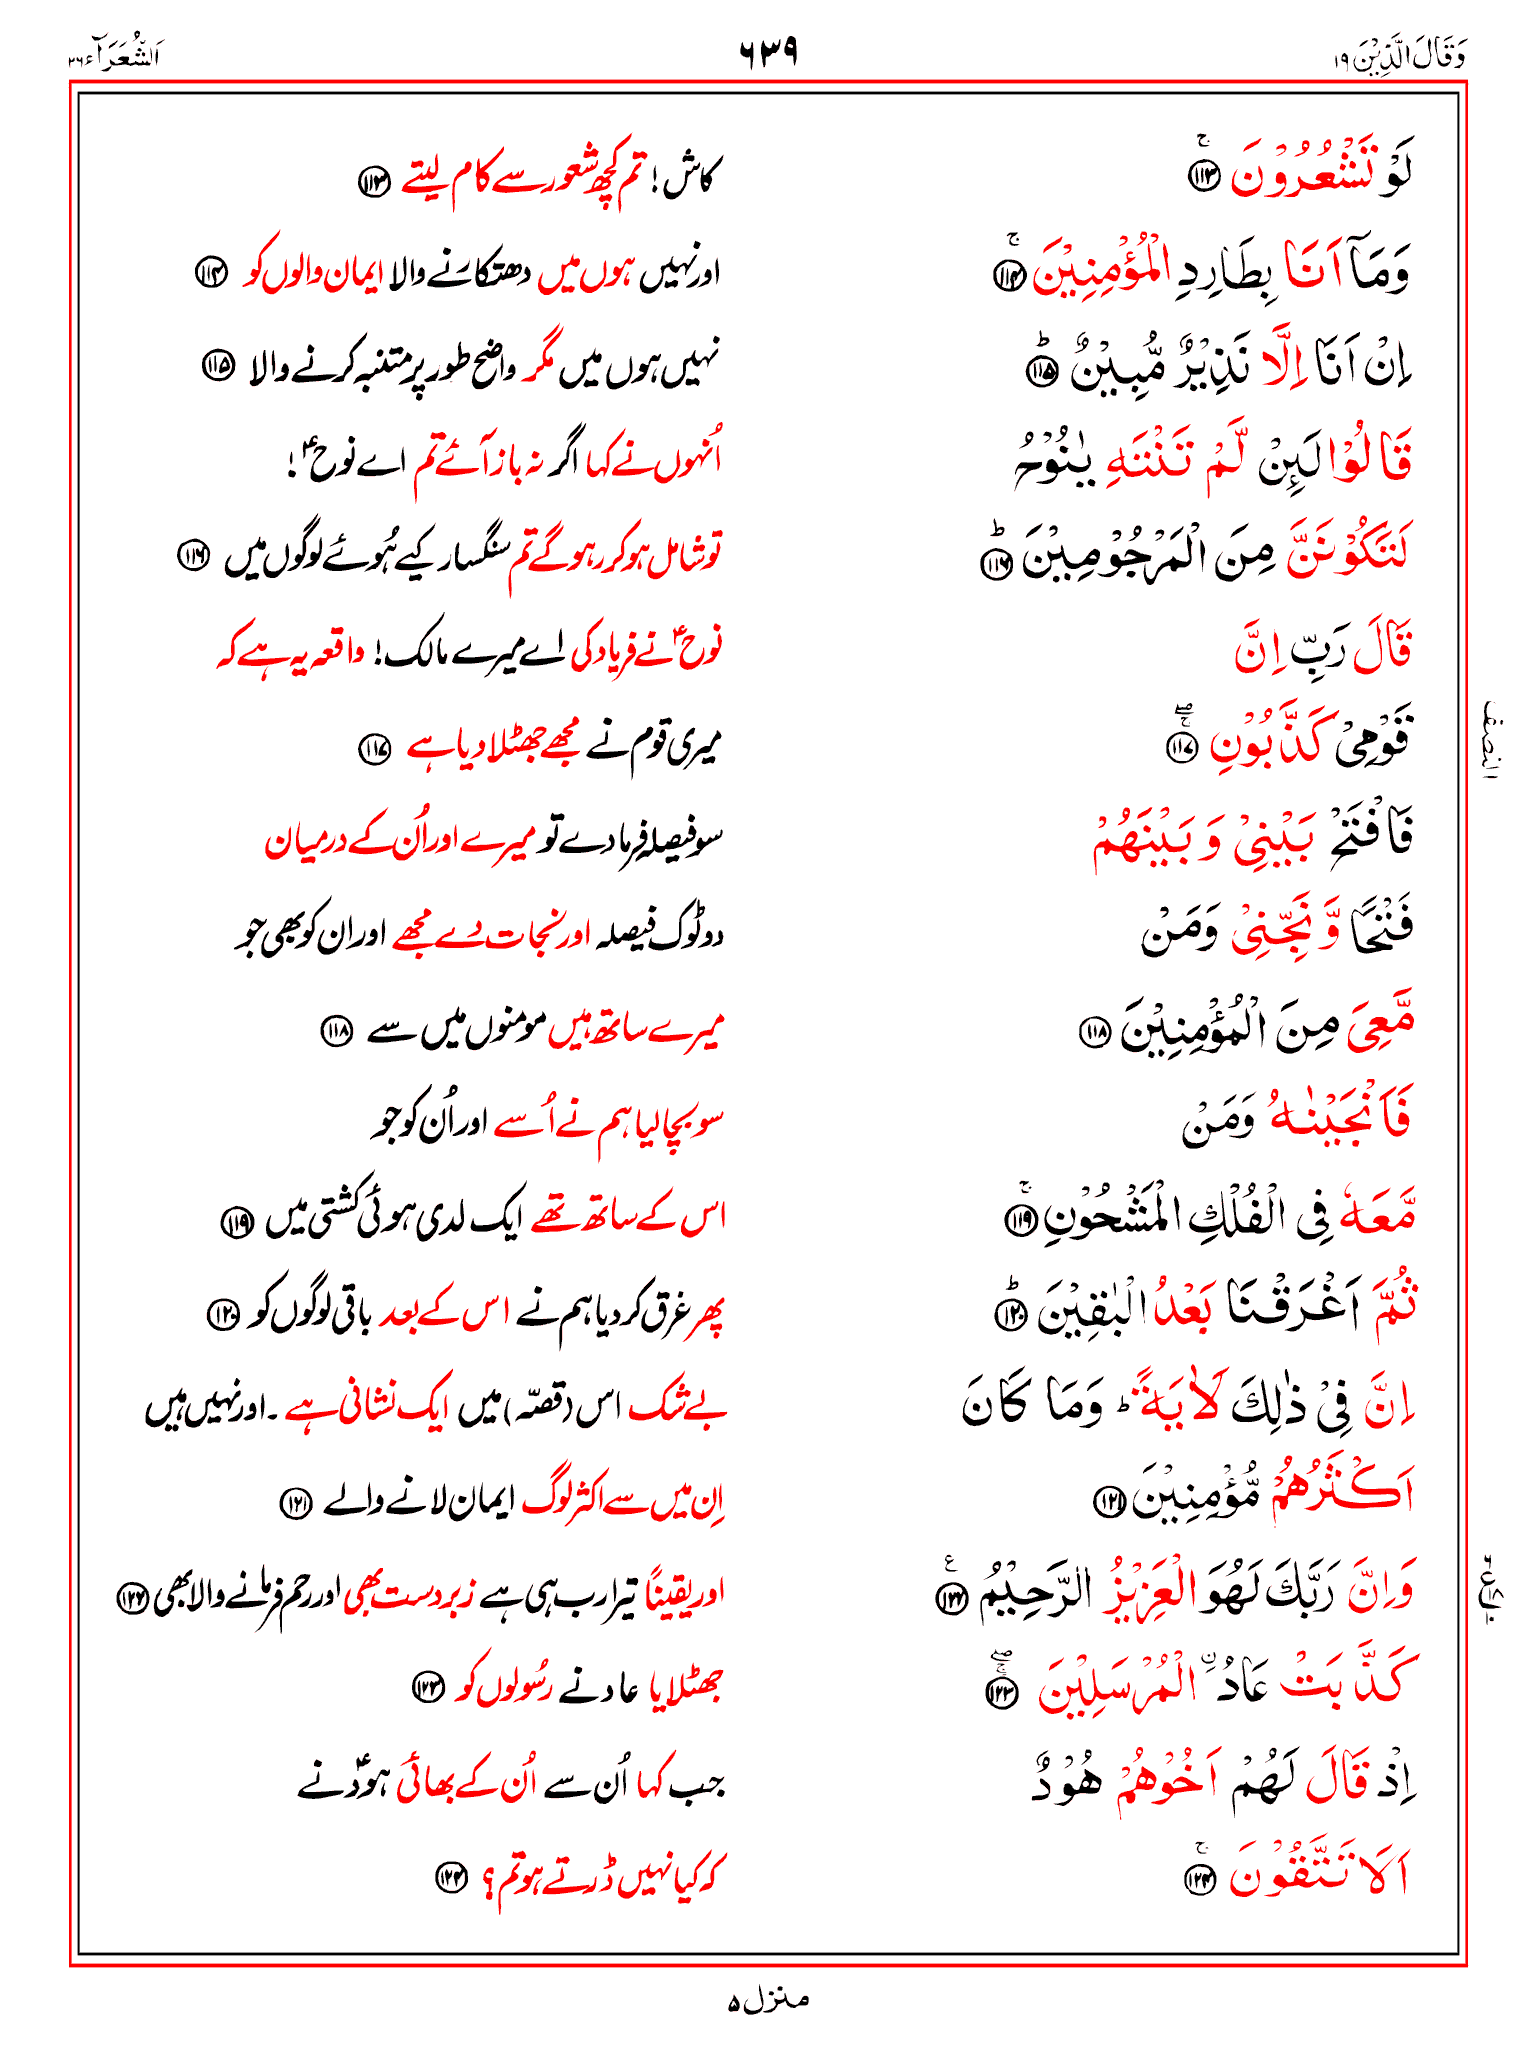 وَقَالَ الَّذِيْنَ ١٩ ٦٣٩ اَلشُّعَرَآء ٢٦
لَوْ تَشْعُرُوْنَ ۚ ﴿۱۱۳﴾ کاش! تم کچھ شعور سے کام لیتے ﴿۱۱۳﴾
وَمَآ اَنَا بِطَارِدِ الْمُؤْمِنِيْنَ ۚ ﴿۱۱۴﴾ اور نہیں ہوں میں دھتکارنے والا ایمان والوں کو ﴿۱۱۴﴾
اِنْ اَنَا اِلَّا نَذِيْرٌ مُّبِيْنٌ ؕ ﴿۱۱۵﴾ نہیں ہوں میں مگر واضح طور پر متنبہ کرنے والا ﴿۱۱۵﴾
قَالُوْا لَىِٕنْ لَّمْ تَنْتَهِ يٰنُوْحُ اُنہوں نے کہا اگر نہ باز آئے تم اے نوحؑ!
لَتَكُوْنَنَّ مِنَ الْمَرْجُوْمِيْنَ ؕ ﴿۱۱۶﴾ تو شامل ہو کر رہو گے تم سنگسار کیے ہُوئے لوگوں میں ﴿۱۱۶﴾
قَالَ رَبِّ اِنَّ نوحؑ نے فریاد کی اے میرے مالک! واقعہ یہ ہے کہ
قَوْمِيْ كَذَّبُوْنِ ۚۖ ﴿۱۱۷﴾ میری قوم نے مجھے جھٹلا دیا ہے ﴿۱۱۷﴾
النصف
فَافْتَحْ بَيْنِيْ وَبَيْنَهُمْ سو فیصلہ فرما دے تو میرے اور اُن کے درمیان
فَتْحًا وَّنَجِّنِيْ وَمَنْ دو ٹوک فیصلہ اور نجات دے مجھے اور ان کو بھی جو
مَّعِيَ مِنَ الْمُؤْمِنِيْنَ ﴿۱۱۸﴾ میرے ساتھ ہیں مومنوں میں سے ﴿۱۱۸﴾
فَاَنْجَيْنٰهُ وَمَنْ سو بچا لیا ہم نے اُسے اور اُن کو جو
مَّعَهٗ فِي الْفُلْكِ الْمَشْحُوْنِ ۚ ﴿۱۱۹﴾ اس کے ساتھ تھے ایک لدی ہوئی کشتی میں ﴿۱۱۹﴾
ثُمَّ اَغْرَقْنَا بَعْدُ الْبٰقِيْنَ ؕ ﴿۱۲۰﴾ پھر غرق کر دیا ہم نے اس کے بعد باقی لوگوں کو ﴿۱۲۰﴾
اِنَّ فِيْ ذٰلِكَ لَاٰيَةً ؕ وَمَا كَانَ بے شک اس (قصّہ) میں ایک نشانی ہے۔ اور نہیں ہیں
اَكْثَرُهُمْ مُّؤْمِنِيْنَ ﴿۱۲۱﴾ اِن میں سے اکثر لوگ ایمان لانے والے ﴿۱۲۱﴾
وَاِنَّ رَبَّكَ لَهُوَ الْعَزِيْزُ الرَّحِيْمُ ﴿۱۲۲﴾ۧ اور یقیناً تیرا رب ہی ہے زبردست بھی اور رحم فرمانے والا بھی ﴿۱۲۲﴾
كَذَّبَتْ عَادُ ۨالْمُرْسَلِيْنَ ۚۖ ﴿۱۲۳﴾ جھٹلایا عاد نے رسُولوں کو ﴿۱۲۳﴾
اِذْ قَالَ لَهُمْ اَخُوْهُمْ هُوْدٌ جب کہا اُن سے اُن کے بھائی ہودؑ نے
اَلَا تَتَّقُوْنَ ۚ ﴿۱۲۴﴾ کہ کیا نہیں ڈرتے ہو تم؟ ﴿۱۲۴﴾
منزل ۵